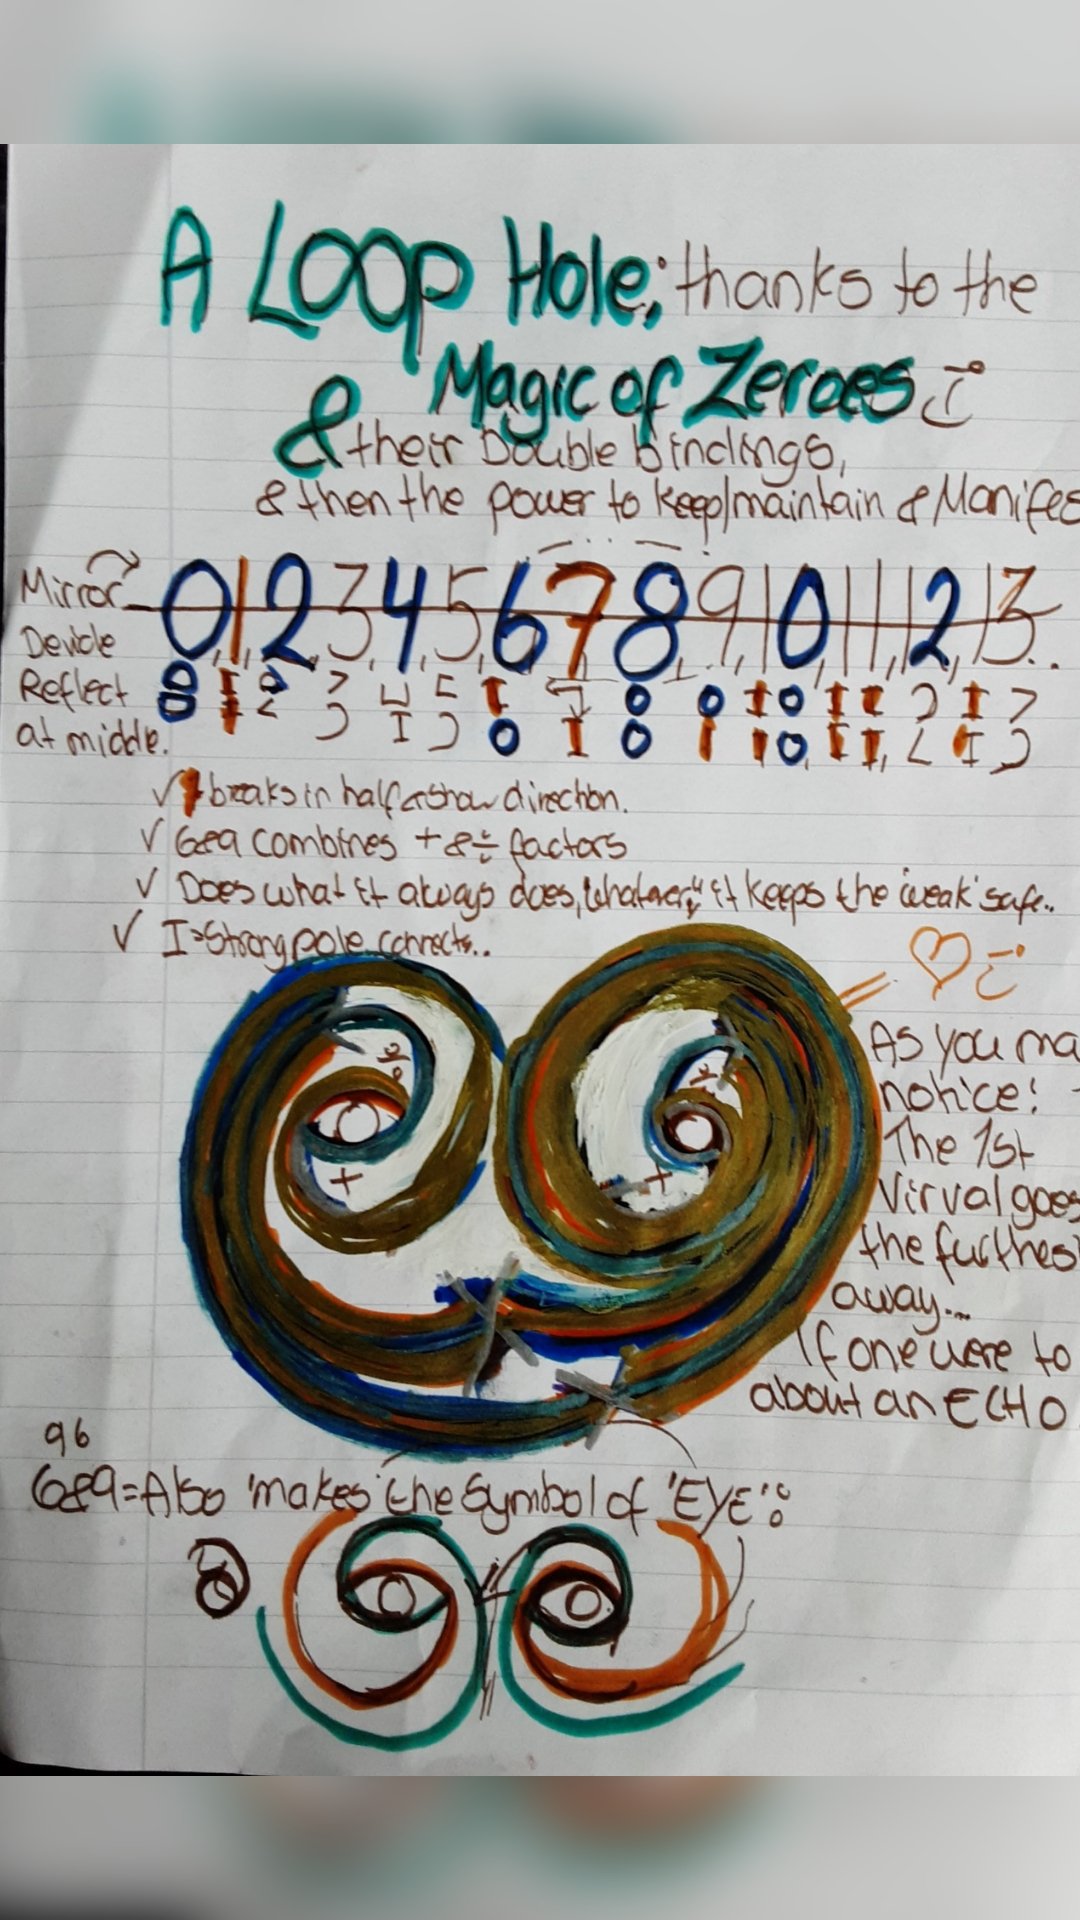 A Loop Hole; thanks to the
Magic of Zeroes
& their Double bindings,
& then the power to keep/maintain & Manifes
Mirror 0,1,2,3,4,5,6,7,8,9,10,11,12,13..
Devide
Reflect
at middle.
✓ 1 breaks in half & show direction.
✓ 6&9 combines + & ÷ factors
✓ Does what it always does, "whatever," it keeps the 'weak' safe..
✓ I = Strong pole connects..
As you ma
notice:
The 1st
Virval goes
the furthes
away...
If one were to
about an ECHO
96
6&9 = Also 'makes' the symbol of 'EYE':